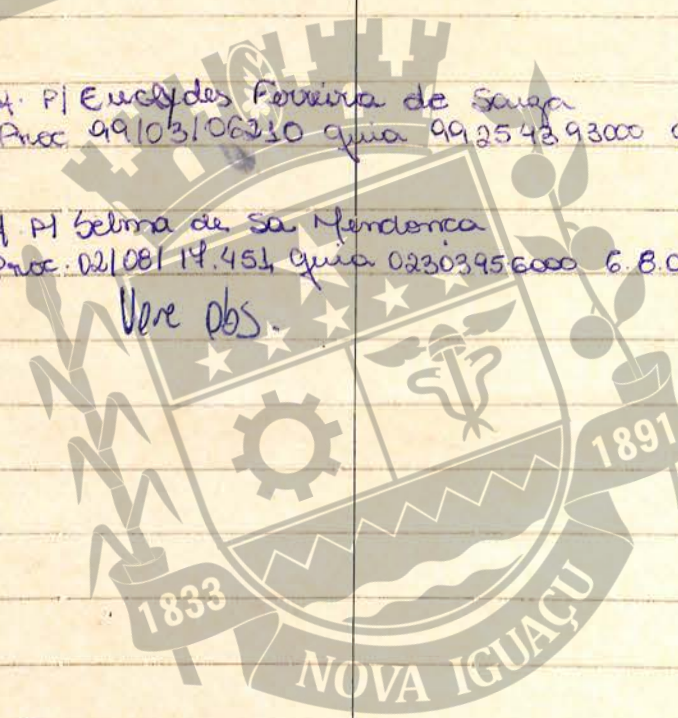 4. P/ Euclydes Ferreira de Souza
Proc 99/03/06210 guia 99254393000
P/ Selma de Sá Mendonca
Proc. 02/08/17.451 guia 02303956000 6.8.0
Vere obs.
1891
1833
NOVA IGUAÇU